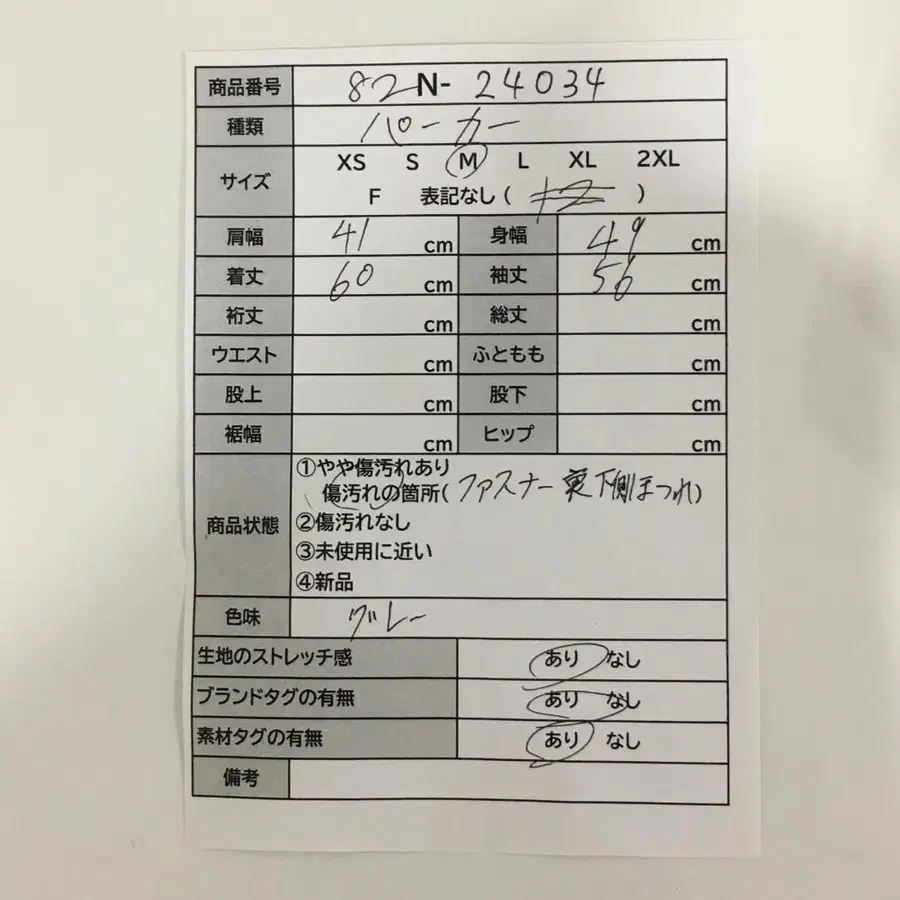 商品番号 82N-24034
種類 パーカー
サイズ XS S M L XL 2XL
F 表記なし( )
肩幅 41 cm 身幅 49 cm
着丈 60 cm 袖丈 56 cm
裄丈 cm 総丈 cm
ウエスト cm ふともも cm
股上 cm 股下 cm
裾幅 cm ヒップ cm
商品状態 ①やや傷汚れあり
傷汚れの箇所(ファスナー裏下側ほつれ)
②傷汚れなし
③未使用に近い
④新品
色味 グレー
生地のストレッチ感 あり なし
ブランドタグの有無 あり なし
素材タグの有無 あり なし
備考